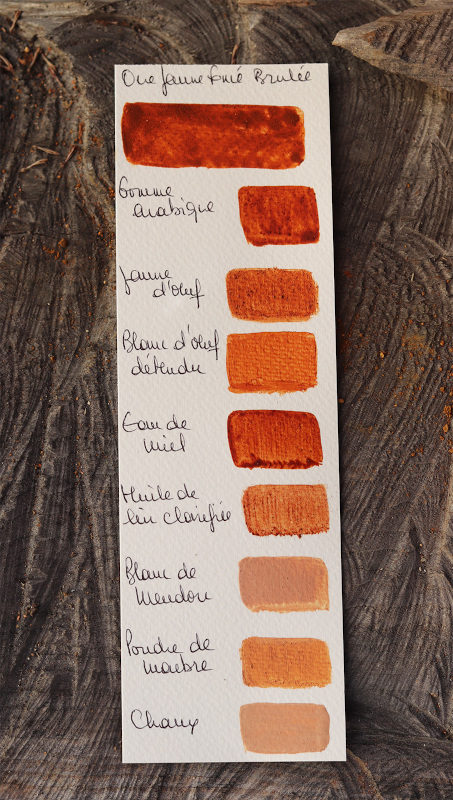 Ocre Jaune foncé Brulée
Gomme
arabique
Jaune
d'oeuf
Blanc d'oeuf
détendu
Eau de
miel
Huile de
lin clarifiée
Blanc de
Meudon
Poudre de
marbre
Chaux